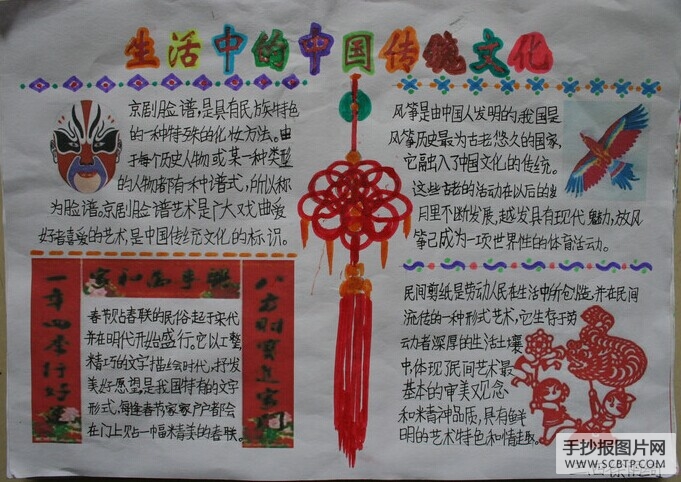 生活中的中国传统文化
京剧脸谱,是具有民族特色
的一种特殊的化妆方法。由
于每个历史人物或某一种类型
的人物都有一种谱式,所以称
为脸谱。京剧脸谱艺术是广大戏曲爱
好者喜爱的艺术,是中国传统文化的标识。
风筝是由中国人发明的,我国是
风筝历史最为古老悠久的国家,
它融入了中国文化的传统。
这些古老的活动在以后的岁
月里不断发展,越发具有现代魅力,放风
筝已成为一项世界性的体育活动。
一年四季行好运
八方财宝进家门
家和万事兴
春节贴春联的民俗起于宋代
并在明代开始盛行。它以工整、
精巧的文字描绘时代,抒发
美好愿望,是我国特有的文字
形式,每逢春节家家户户都会
在门上贴一幅精美的春联。
民间剪纸是劳动人民在生活中所创造,并在民间
流传的一种形式艺术,它生存于劳
动者深厚的生活土壤
中体现了民间艺术最
基本的审美观念
和精神品质,具有鲜
明的艺术特色和情趣。
手抄报图片网
WWW.SCBTP.COM